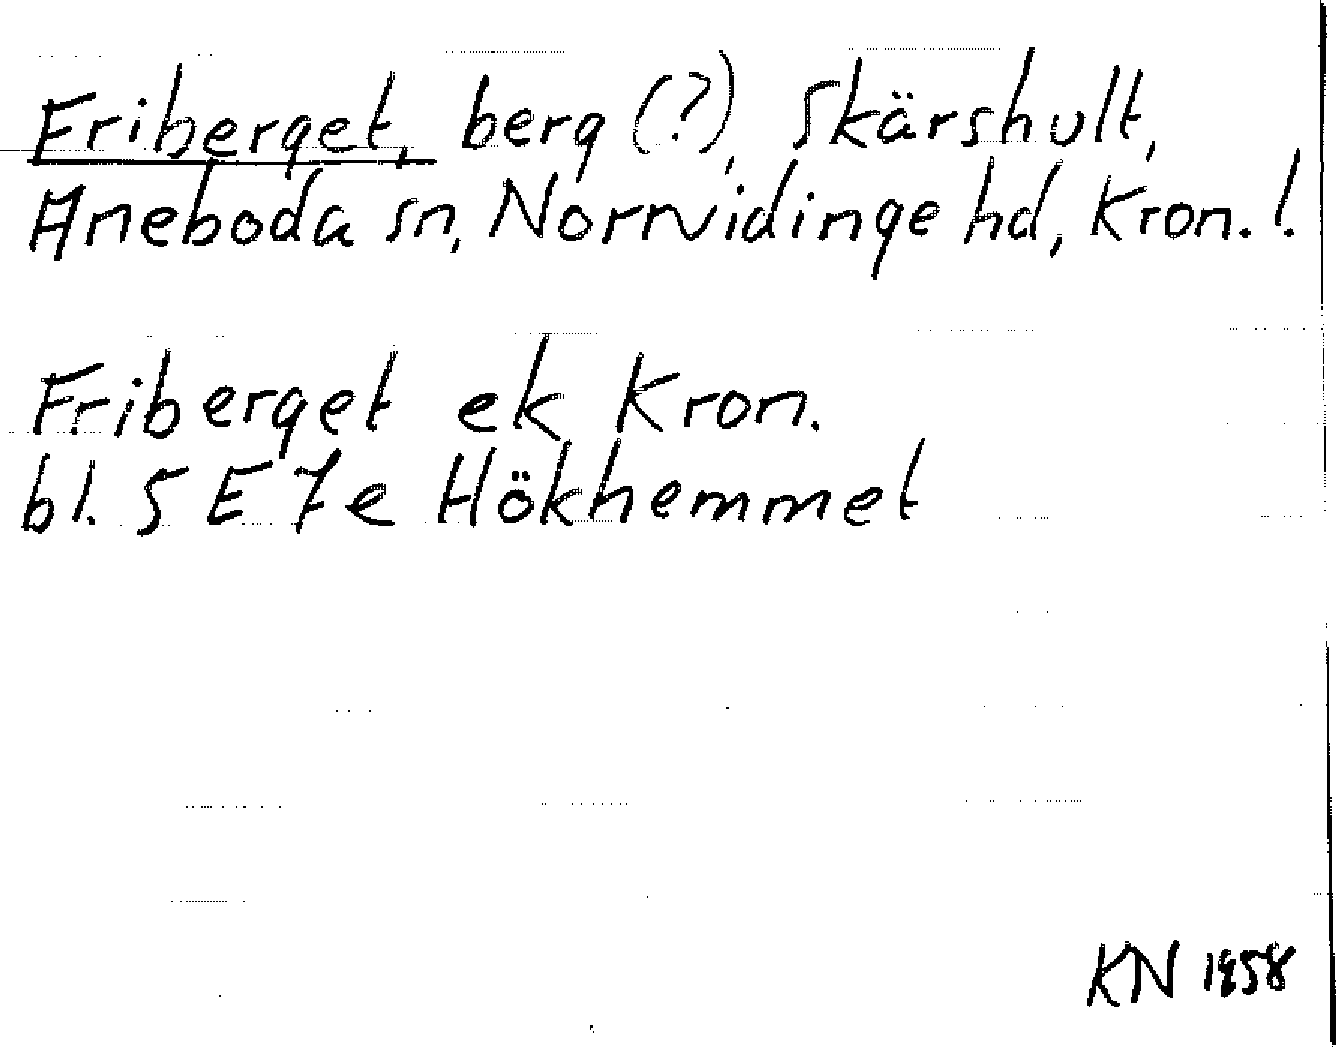 Friberget, berg (?), Skärshult,
Aneboda sn, Norrvidinge hd, Kron. l.
Friberget ek Kron.
bl. 5 E 7 e Hökhemmet
KN 1958